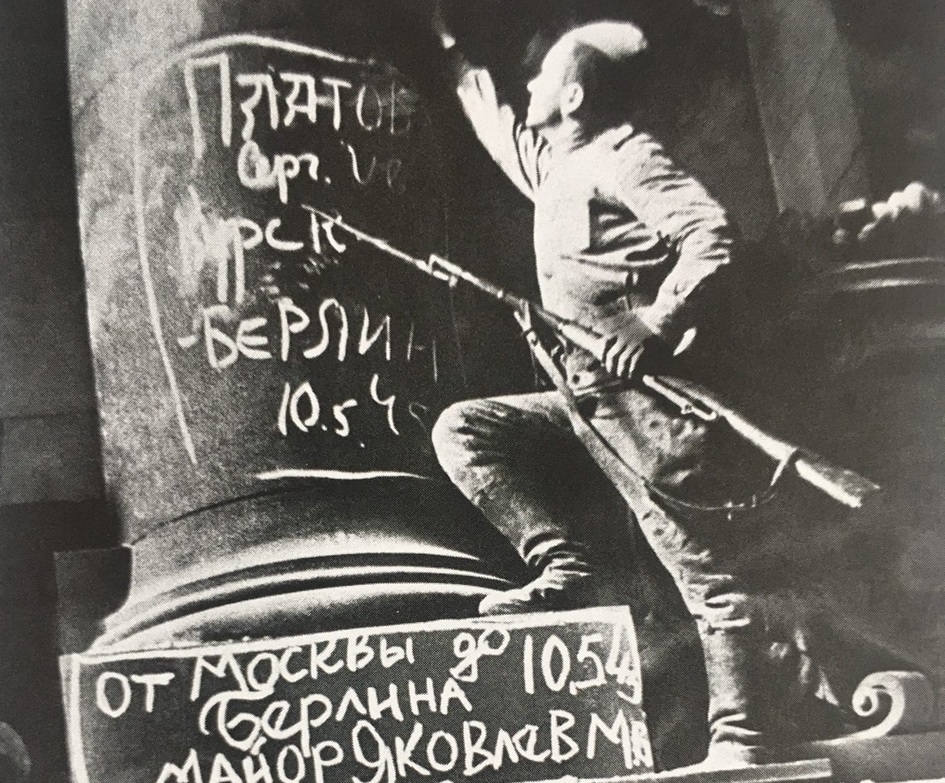 ПЛАТОВ
Серг.
Курск
-БЕРЛИН
10.5.4
ОТ МОСКВЫ до 10.5.45
Берлина
МАЙОР ЯКОВЛЕВ М.В